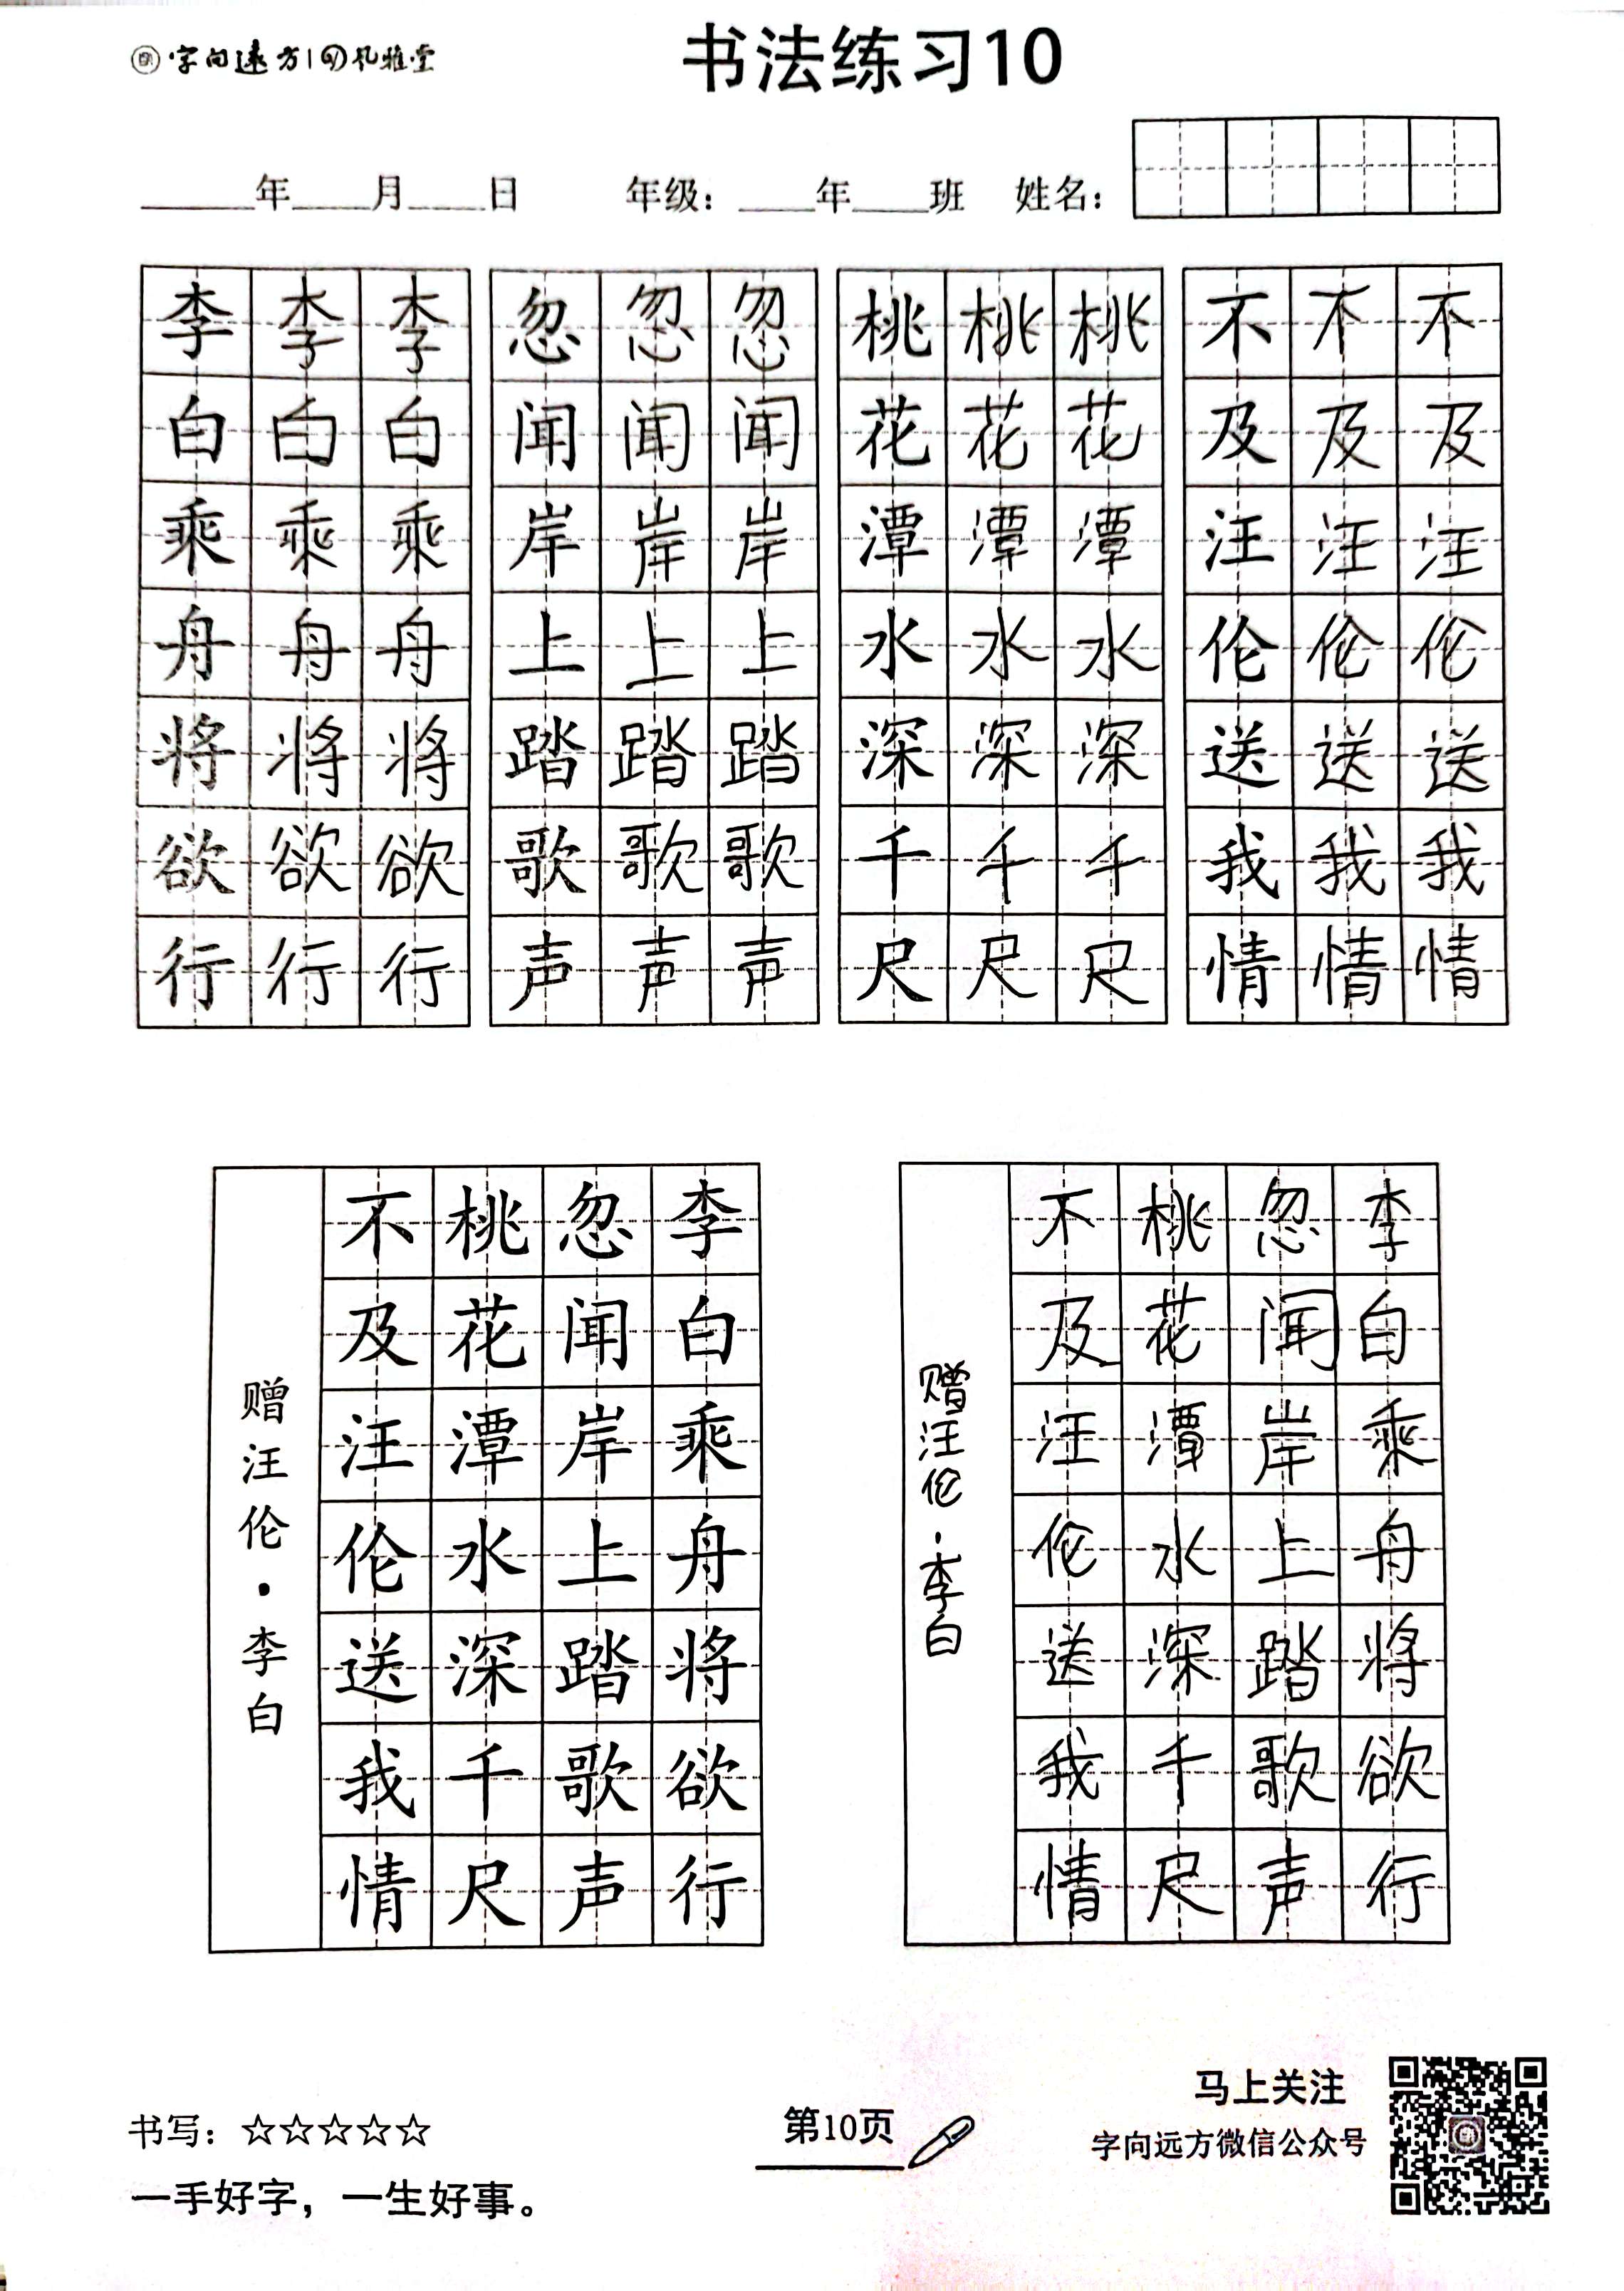 字向远方 | 孔雅堂
书法练习10
____年____月____日 年级：____年____班 姓名：
李李李 忽忽忽 桃桃桃 不不不
白白白 闻闻闻 花花花 及及及
乘乘乘 岸岸岸 潭潭潭 汪汪汪
舟舟舟 上上上 水水水 伦伦伦
将将将 踏踏踏 深深深 送送送
欲欲欲 歌歌歌 千千千 我我我
行行行 声声声 尺尺尺 情情情
李白乘舟将欲行
忽闻岸上踏歌声
桃花潭水深千尺
不及汪伦送我情
赠汪伦·李白
李白乘舟将欲行
忽闻岸上踏歌声
桃花潭水深千尺
不及汪伦送我情
赠汪伦·李白
书写：☆☆☆☆☆
一手好字，一生好事。
第10页
马上关注
字向远方微信公众号